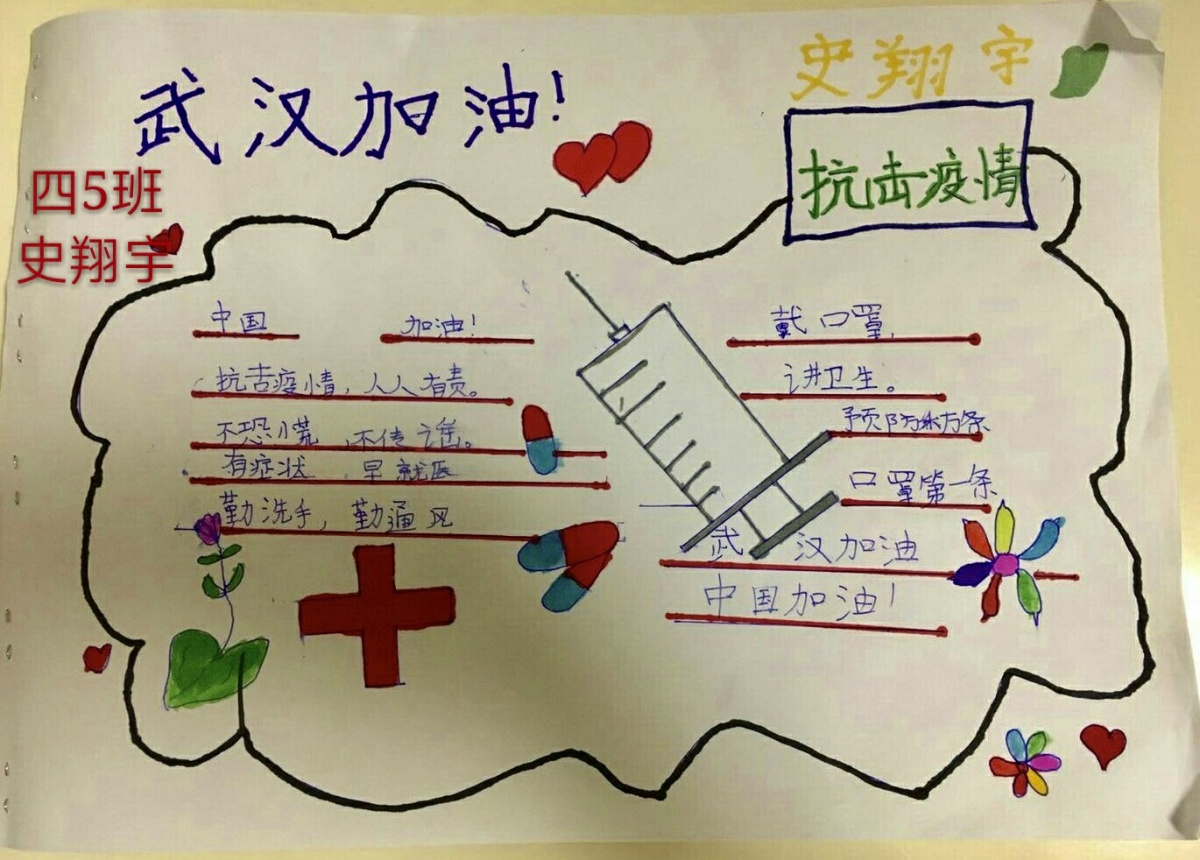 武汉加油！
史翔宇
抗击疫情
四5班
史翔宇
中国 加油！
抗击疫情，人人有责。
不恐慌，不传谣。
有症状，早就医
勤洗手，勤通风
戴口罩，
讲卫生。
预防千万条
口罩第一条
武汉加油
中国加油！